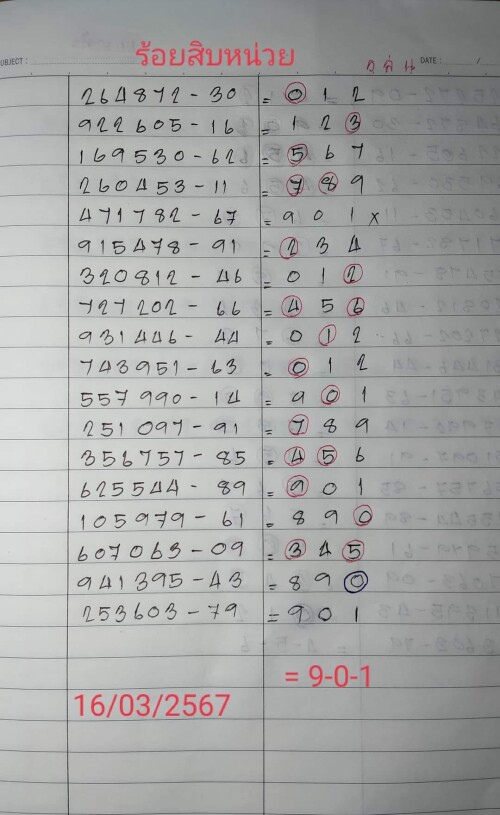 ร้อยสิบหน่วย
SUBJECT : DATE : /
264872-30 = 0 1 2
922605-16 = 1 2 3
169530-62 = 5 6 7
260453-11 = 7 8 9
471782-67 = 9 0 1 x
915478-91 = 2 3 4
320812-46 = 0 1 2
727202-66 = 4 5 6
931446-44 = 0 1 2
743951-63 = 0 1 2
557990-14 = 9 0 1
251097-91 = 7 8 9
356757-85 = 4 5 6
625544-89 = 9 0 1
105979-61 = 8 9 0
607063-09 = 3 4 5
941395-43 = 8 9 0
253603-79 = 9 0 1
= 9-0-1
16/03/2567